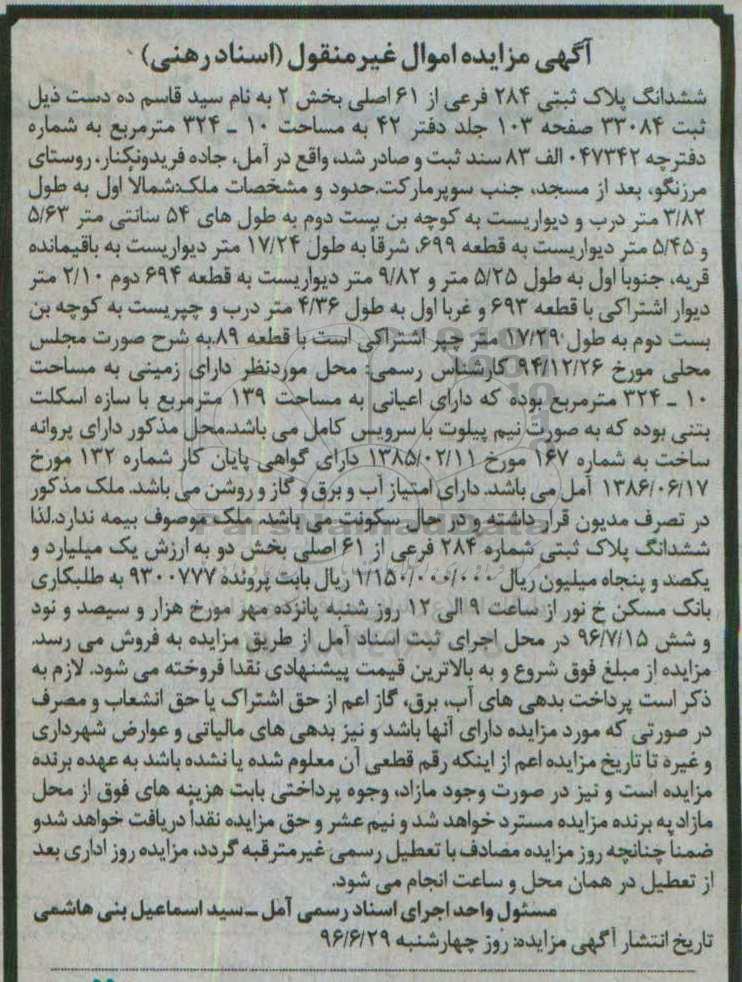 آگهی مزایده اموال غیرمنقول (اسناد رهنی)
ششدانگ پلاک ثبتی ۲۸۴ فرعی از ۶۱ اصلی بخش ۲ به نام سید قاسم ده دست ذیل
ثبت ۳۳۰۸۴ صفحه ۱۰۳ جلد دفتر ۴۲ به مساحت ۱۰ ـ ۳۲۴ مترمربع به شماره
دفترچه ۰۴۷۳۴۲ الف ۸۳ سند ثبت و صادر شد، واقع در آمل، جاده فریدونکنار، روستای
مرزنگو، بعد از مسجد، جنب سوپرمارکت.حدود و مشخصات ملک:شمالا اول به طول
۳/۸۲ متر درب و دیواریست به کوچه بن بست دوم به طول های ۵۴ سانتی متر ۵/۶۳
و ۵/۴۵ متر دیواریست به قطعه ۶۹۹، شرقا به طول ۱۷/۲۴ متر دیواریست به باقیمانده
قریه، جنوبا اول به طول ۵/۲۵ متر و ۹/۸۲ متر دیواریست به قطعه ۶۹۴ دوم ۲/۱۰ متر
دیوار اشتراکی با قطعه ۶۹۳ و غربا اول به طول ۴/۳۶ متر درب و چپریست به کوچه بن
بست دوم به طول ۱۷/۲۹ متر چپر اشتراکی است با قطعه ۸۹.به شرح صورت مجلس
محلی مورخ ۹۴/۱۲/۲۶ کارشناس رسمی: محل موردنظر دارای زمینی به مساحت
۱۰ ـ ۳۲۴ مترمربع بوده که دارای اعیانی به مساحت ۱۳۹ مترمربع با سازه اسکلت
بتنی بوده که به صورت نیم پیلوت با سرویس کامل می باشد.محل مذکور دارای پروانه
ساخت به شماره ۱۶۷ مورخ ۱۳۸۵/۰۲/۱۱ دارای گواهی پایان کار شماره ۱۳۲ مورخ
۱۳۸۶/۰۶/۱۷ آمل می باشد. دارای امتیاز آب و برق و گاز و روشن می باشد. ملک مذکور
در تصرف مدیون قرار داشته و در حال سکونت می باشد. ملک موصوف بیمه ندارد.لذا
ششدانگ پلاک ثبتی شماره ۲۸۴ فرعی از ۶۱ اصلی بخش دو به ارزش یک میلیارد و
یکصد و پنجاه میلیون ریال ۱/۱۵۰/۰۰۰/۰۰۰ ریال بابت پرونده ۹۳۰۰۷۷۷ به طلبکاری
بانک مسکن خ نور از ساعت ۹ الی ۱۲ روز شنبه پانزده مهر مورخ هزار و سیصد و نود
و شش ۹۶/۷/۱۵ در محل اجرای ثبت اسناد آمل از طریق مزایده به فروش می رسد.
مزایده از مبلغ فوق شروع و به بالاترین قیمت پیشنهادی نقدا فروخته می شود. لازم به
ذکر است پرداخت بدهی های آب، برق، گاز اعم از حق اشتراک یا حق انشعاب و مصرف
در صورتی که مورد مزایده دارای آنها باشد و نیز بدهی های مالیاتی و عوارض شهرداری
و غیره تا تاریخ مزایده اعم از اینکه رقم قطعی آن معلوم شده یا نشده باشد به عهده برنده
مزایده است و نیز در صورت وجود مازاد، وجوه پرداختی بابت هزینه های فوق از محل
مازاد به برنده مزایده مسترد خواهد شد و نیم عشر و حق مزایده نقدا دریافت خواهد شدو
ضمنا چنانچه روز مزایده مصادف با تعطیل رسمی غیرمترقبه گردد، مزایده روز اداری بعد
از تعطیل در همان محل و ساعت انجام می شود.
مسئول واحد اجرای اسناد رسمی آمل ـ سید اسماعیل بنی هاشمی
تاریخ انتشار آگهی مزایده: روز چهارشنبه ۹۶/۶/۲۹
ParsNamadData